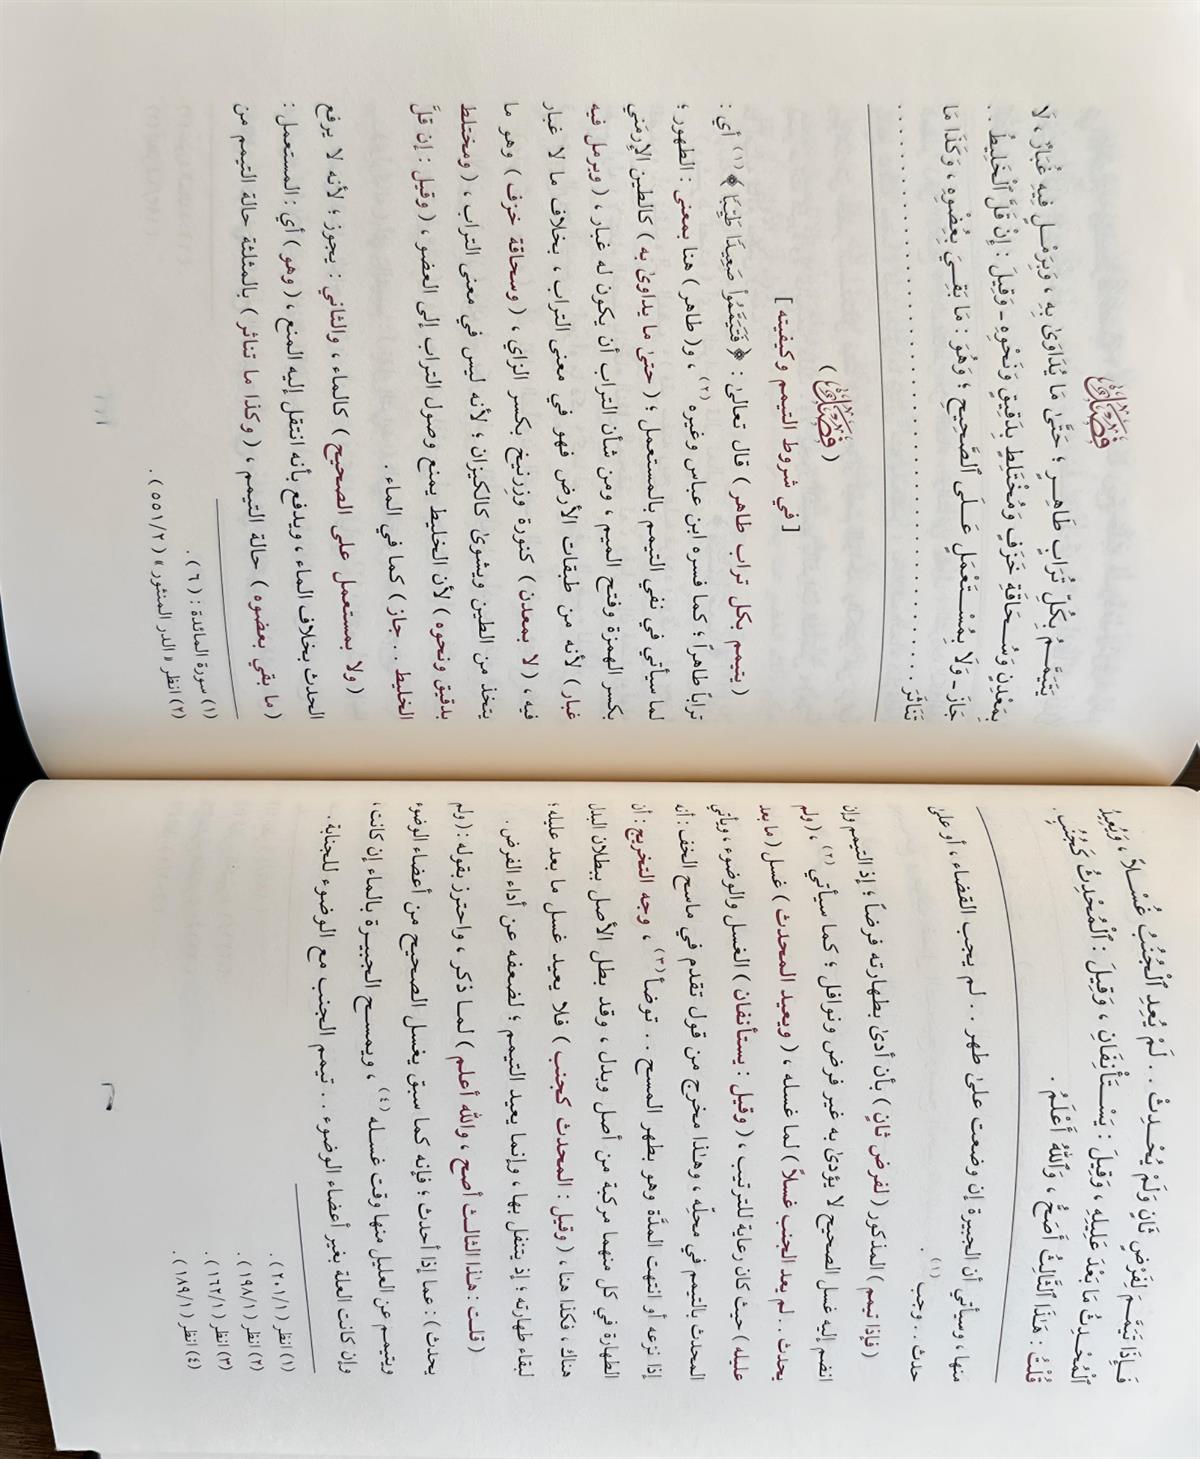 فَإِذَا تَيَمَّمَ لِفَرْضٍ ثَانٍ وَلَمْ يُحْدِثْ .. لَمْ يُعِدِ ٱلْجُنُبُ غُسْلاً ، وَيُعِيدُ
ٱلْمُحْدِثُ مَا بَعْدَ عَلِيلِهِ ، وَقِيلَ : يَسْتَأْنِفَانِ ، وَقِيلَ : ٱلْمُحْدِثُ كَجُنُبٍ .
قُلْتُ : هَـٰذَا ٱلثَّالِثُ أَصَحُّ ، وَٱللهُ أَعْلَمُ .
منها ، وسيأتي أن الجبيرة إن وضعت علىٰ طهر .. لم يجب القضاء ، أو علىٰ
حدث .. وجب (١) .
( فإذا تيمم ) المذكور ( لفرض ثانٍ ) بأن أدىٰ بطهارته فرضاً ؛ إذ التيمم وإن
انضم إليه غسل الصحيح لا يؤدىٰ به غير فرض ونوافل ؛ كما سيأتي (٢) ، ( ولم
يحدث .. لم يعد الجنب غسلاً ) لما غسله ، ( ويعيد المحدث ) غسل ( ما بعد
عليله ) حيث كان رعاية للترتيب ، ( وقيل : يستأنفان ) الغسل والوضوء ، ويأتي
المحدث بالتيمم في محلّه ، وهـٰذا مخرج من قول تقدم في ماسح الخف : أنه
إذا نزعه أو انتهت المدَّة وهو بطهر المسح .. توضأ (٣) ، وجه التخريج : أن
الطهارة في كل منهما مركبة من أصل وبدل ، وقد بطل الأصل ببطلان البدل
هناك ، فكذا هنا ، ( وقيل : المحدث كجنب ) فلا يعيد غسل ما بعد عليله ؛
لبقاء طهارته ؛ إذ يتنفل بها ، وإنما يعيد التيمم ؛ لضعفه عن أداء الفرض .
( قلت : هـٰذا الثالث أصح ، والله أعلم ) لما ذكر ، واحترز بقوله : ( ولم
يحدث ) : عما إذا أحدث ؛ فإنه كما سبق يغسل الصحيح من أعضاء الوضوء
ويتيمم عن العليل منها وقت غسله (٤) ، ويمسح الجبيرة بالماء إن كانت ،
وإن كانت العلة بغير أعضاء الوضوء .. تيمم الجنب مع الوضوء للجنابة .
(١) انظر ( ٢٠١/١ ) .
(٢) انظر ( ١٩٨/١ ) .
(٣) انظر ( ١٦٢/١ ) .
(٤) انظر ( ١٨٩/١ ) .
فَصْلٌ
يَتَيَمَّمُ بِكُلِّ تُرَابٍ طَاهِرٍ ؛ حَتَّىٰ مَا يُدَاوَىٰ بِهِ ، وَبِرَمْلٍ فِيهِ غُبَارٌ ، لَا
بِمَعْدِنٍ وَسُحَاقَةِ خَزَفٍ وَمُخْتَلِطٍ بِدَقِيقٍ وَنَحْوِهِ - وَقِيلَ : إِنْ قَلَّ ٱلْخَلِيطُ ..
جَازَ - وَلَا بِمُسْتَعْمَلٍ عَلَى ٱلصَّحِيحِ ؛ وَهُوَ : مَا بَقِيَ بِعُضْوِهِ ، وَكَذَا مَا
تَنَاثَرَ
( فَصْلٌ )
[ في شروط التيمم وكيفيته ]
( يتيمم بكل تراب طاهر ) قال تعالىٰ : ﴿ فَتَيَمَّمُواْ صَعِيدًا طَيِّبًا ﴾ (١) أي :
تراباً طاهراً ؛ كما فسره ابن عباس وغيره (٢) ، و( طاهر ) هنا بمعنى : الطهور ؛
لما سيأتي في نفي التيمم بالمستعمل ؛ ( حتىٰ ما يداوىٰ به ) كالطين الإِرمَني
بكسر الهمزة وفتح الميم ، ومن شأن التراب أن يكون له غبار ، ( وبرمل فيه
غبار ) لأنه من طبقات الأرض فهو في معنى التراب ، بخلاف ما لا غبار
فيه ، ( لا بمعدن ) كنورة وزِرنيخ بكسر الزاي ، ( وسحاقة خزف ) وهو ما
يتخذ من الطين ويشوىٰ كالكيزان ؛ لأنه ليس في معنى التراب ، ( ومختلط
بدقيق ونحوه ) لأن الخليط يمنع وصول التراب إلى العضو ، ( وقيل : إن قلَّ
الخليط .. جاز ) كما في الماء .
( ولا بمستعمل على الصحيح ) كالماء ، والثاني : يجوز ؛ لأنه لا يرفع
الحدث بخلاف الماء ، ويدفع بأنه انتقل إليه المنع ، ( وهو ) أي : المستعمل :
( ما بقي بعضوه ) حالة التيمم ، ( وكذا ما تناثر ) بالمثلثة حالة التيمم من
(١) سورة المائدة : ( ٦ ) .
(٢) انظر « الدر المنثور » ( ٥٥١/٢ ) .